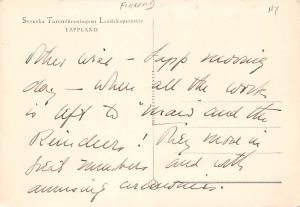 FINLAND
H7
Svenska Turistföreningens Landskapsserier
LAPPLAND
Other side - Lapp moving
day - when all the work
is left to "Maw" and the
Reindeers! They move in
great numbers and with
amusing ceremonies.